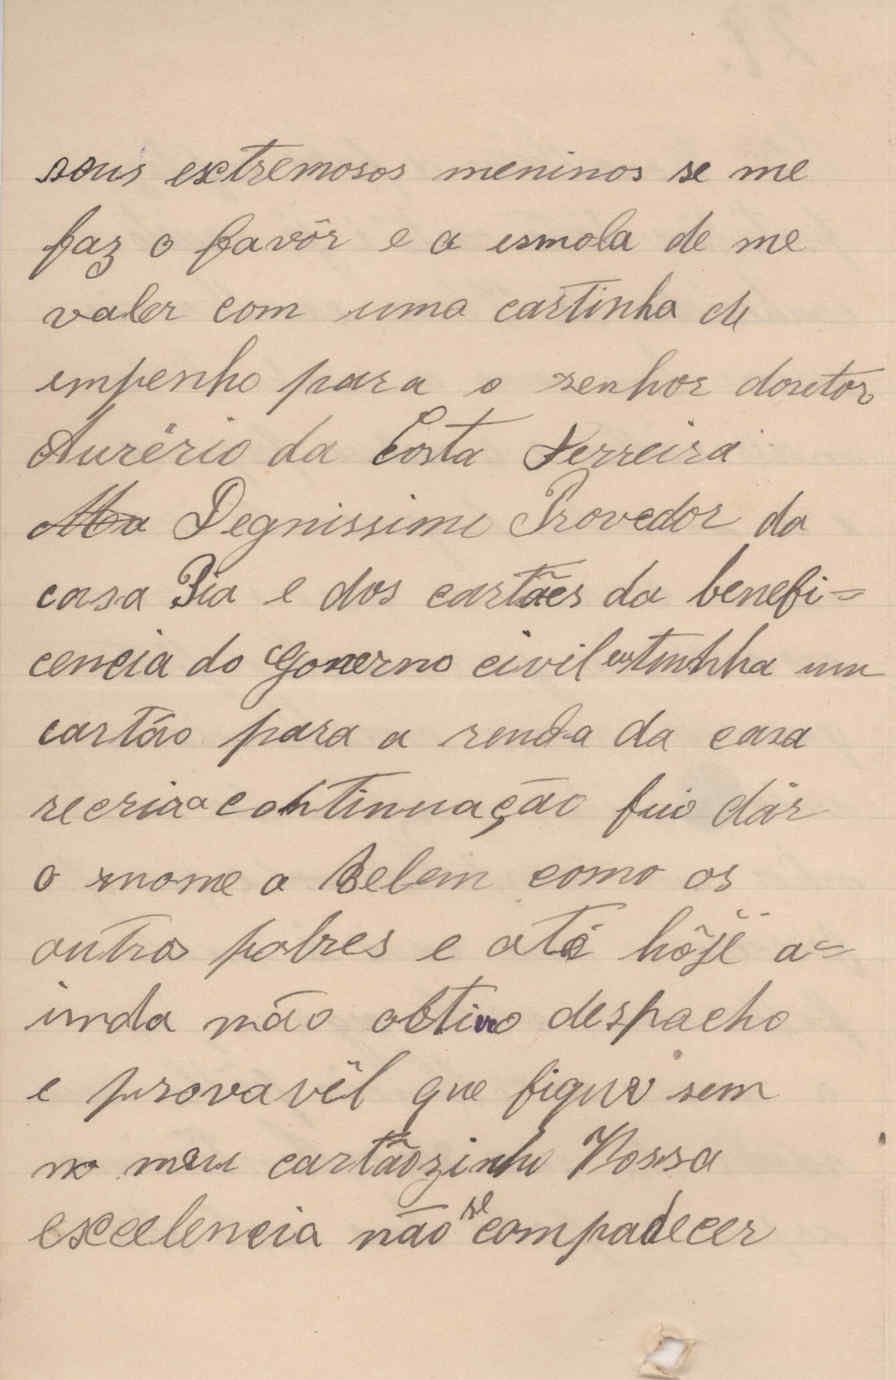 seus extremosos meninos se me
faz o favôr e a esmola de me
valer com uma cartinha de
empenho para o senhor doutor
Aurério da Costa Ferreira
Ma Degnissimo Provedor da
casa Pia e dos cartães da benefi=
cencia do Governo civil eu tinhha um
cartão para a renda da casa
recrira a continuação fuio dár
o nome a Belem como os
outros pobres e até hôje a=
inda não obtivo despacho
e provavêl que fique sem
no meu cartãozinho Vossa
excelencia não se compadecer